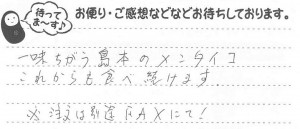 待ってま〜す♪
お便り・ご感想などなどお待ちしております。
一味ちがう島本のメンタイコ
これからも食べ続けます.
※注文は別途FAXにて!